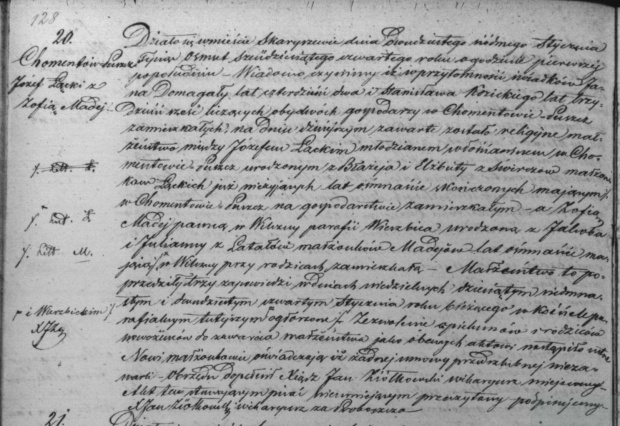 128
20.
Chomentów Puszcz
Józef Łącki z
Zofią Madej.
Działo się w mieście Skaryszewie dnia Dwudziestego siódmego Stycznia
Tysiąc Osmset Sześćdziesiątego czwartego roku o godzinie pierwszej
popołudniu – Wiadomo czynimy iż w przytomności świadków Ja-
na Domagały lat czterdzieści dwa i Stanisława Kozickiego lat trzy-
dzieści sześć liczących obydwóch gospodarzy w Chomentowie-Puszcz
zamieszkałych na dniu dzisiejszym zawarte zostało religijne mał-
żeństwo między Józefem Łąckim młodzianem włościaninem w Cho-
mentowie-Puszcz urodzonym z Błażeja i Elżbiety z Świrczów małżon-
ków Łąckich już nieżyjących lat ośmnaście skończonych mającym
w Chomentowie-Puszcz na gospodarstwie zamieszkałym – a Zofią
Madej panną w Wilczny parafii Wierzbica urodzoną z Jakuba
i Julianny z małżonków Madejów lat ośmnaście ma-
jącą w Wilczny przy rodzicach zamieszkałą – Małżeństwo to po-
przedziły trzy zapowiedzi w dniach niedzielnych dziesiątym siedmna-
stym i dwudziestym czwartym Stycznia roku bieżącego w kościele pa-
rafialnym tutejszym ogłoszone Zezwolenie opiekunów i rodziców
nowożeńców do zawarcia małżeństwa jako obecnych aktowi nastąpiło ustne
Nowi małżonkowie oświadczają iż żadnej umowy przedślubnej nieza-
warli – Obrzędu dopełnił Xiądz Jan Ziółkowski wikaryusz miejscowy
Akt ten stawającym pisać nieumiejącym przeczytany podpisujemy
XJan Ziółkowski wikaryusz za Proboszcza
litt.
litt.
litt. M.
i Wierzbickim
21.